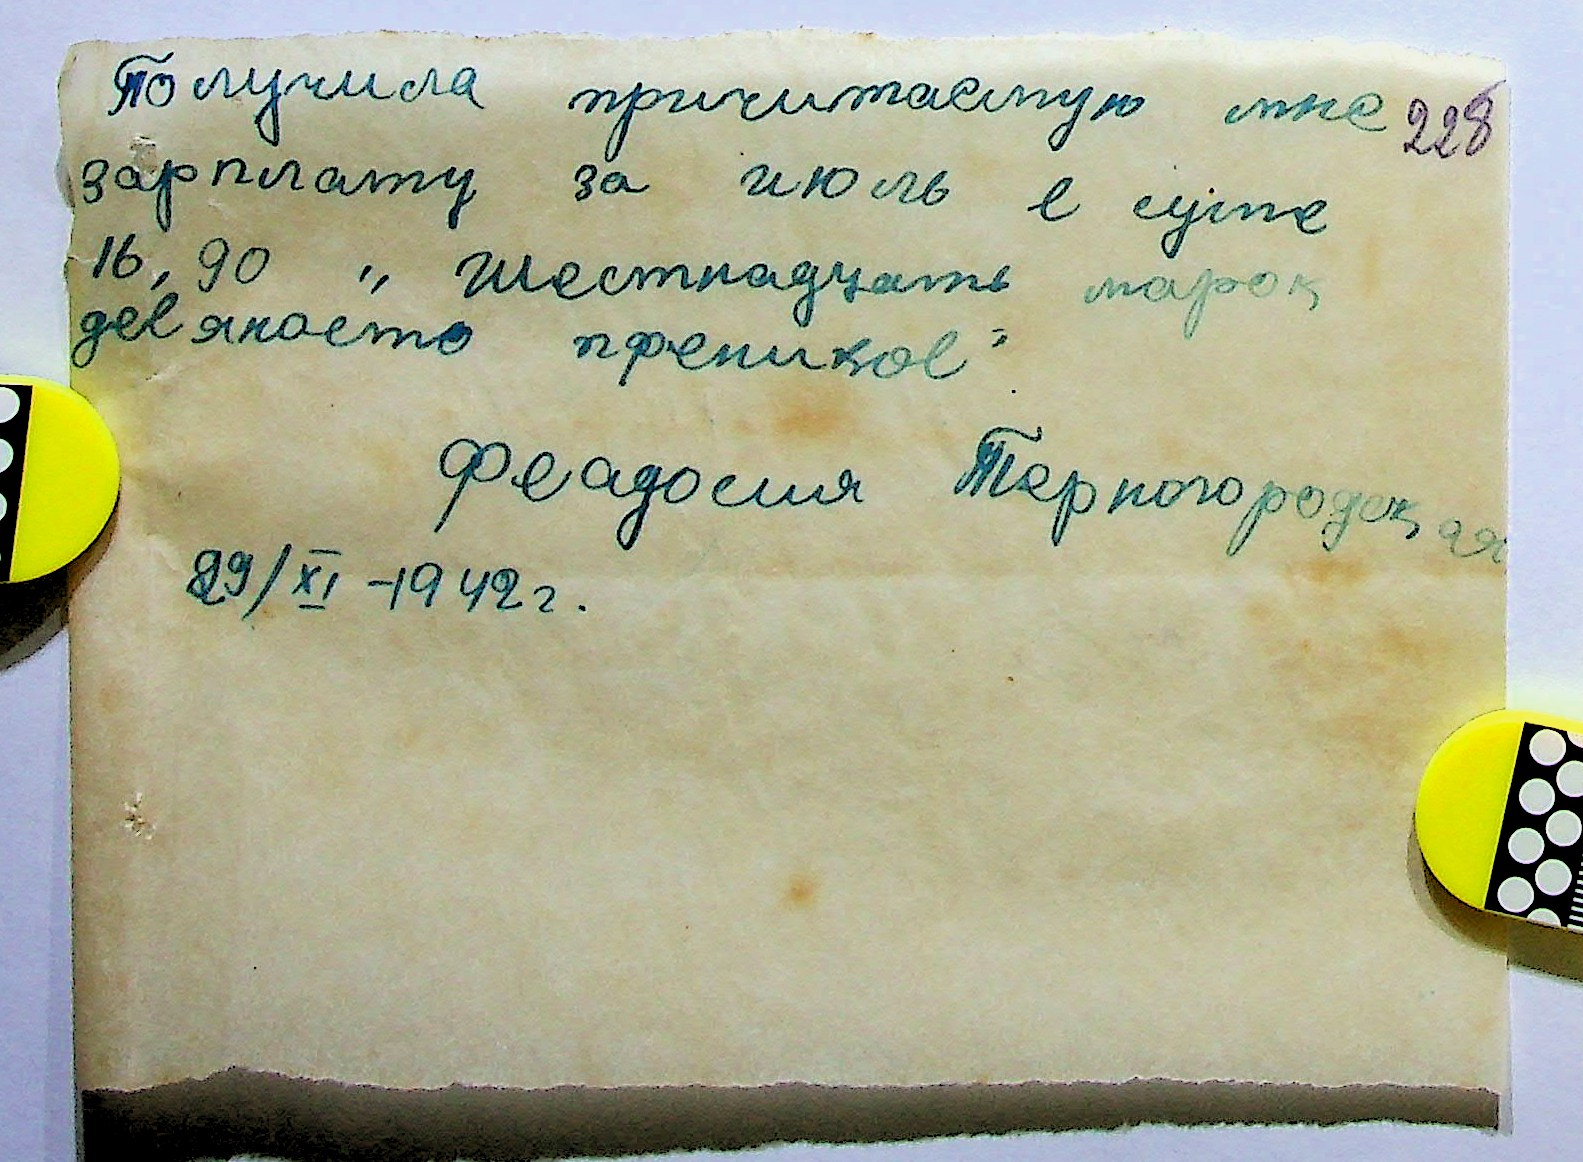 Получила причитаемую мне 228
зарплату за июль в суме
16,90 „ Шестнадцать марок
девяносто пфеников"
Феадосия Терногородская
29/XI - 1942 г.